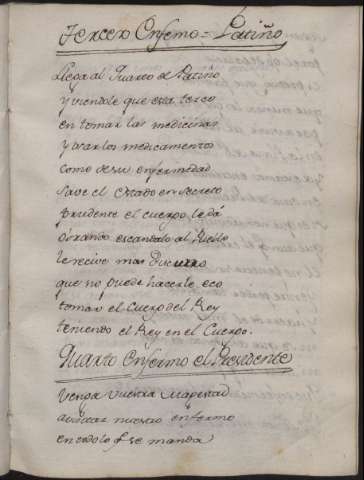 Tercer Enfermo = Patiño
Llega al Quarto de Patiño
y viendole que esta terco
en tomar las medicinas
y usar los medicamentos
como de su enfermedad
save el estado en secreto
prudente el cuerpo le dá
obrando escandalo al Pueblo
le recive mas
que no puede hacerle eco
tomar el Cuerpo del Rey
teniendo el Rey en el Cuerpo.
Quarto Enfermo el Presidente
Venga Vuestra Magestad
nuestro enfermo
en todo lo q se manda